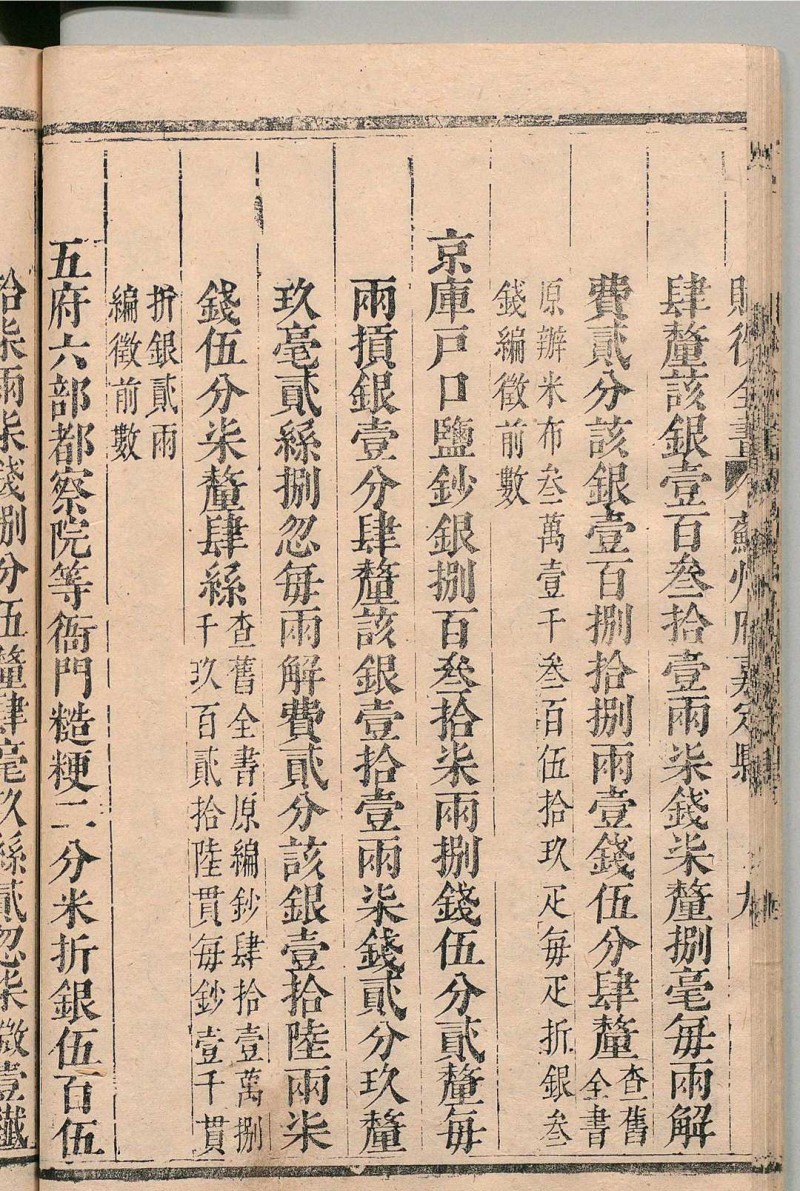 賦役全書 蘇州府嘉定縣 九
肆釐該銀壹百叁拾壹兩柒錢柒釐捌毫每兩解
費貳分該銀壹百捌拾捌兩壹錢伍分肆釐查舊全書
原辦米布叁萬壹千叁百伍拾玖疋每疋折銀叁
錢編徵前數
京庫戸口鹽鈔銀捌百叁拾柒兩捌錢伍分貳釐每
兩摃銀壹分肆釐該銀壹拾壹兩柒錢貳分玖釐
玖毫貳絲捌忽每兩解費貳分該銀壹拾陸兩柒
錢伍分柒釐肆絲查舊全書原編鈔肆拾壹萬捌千玖百貳拾陸貫每鈔壹千貫
折銀貳兩
編徵前數
五府六部都察院等衙門糙粳二分米折銀伍百伍
拾柒兩柒錢捌分伍釐肆毫玖絲貳忽柒微壹纖